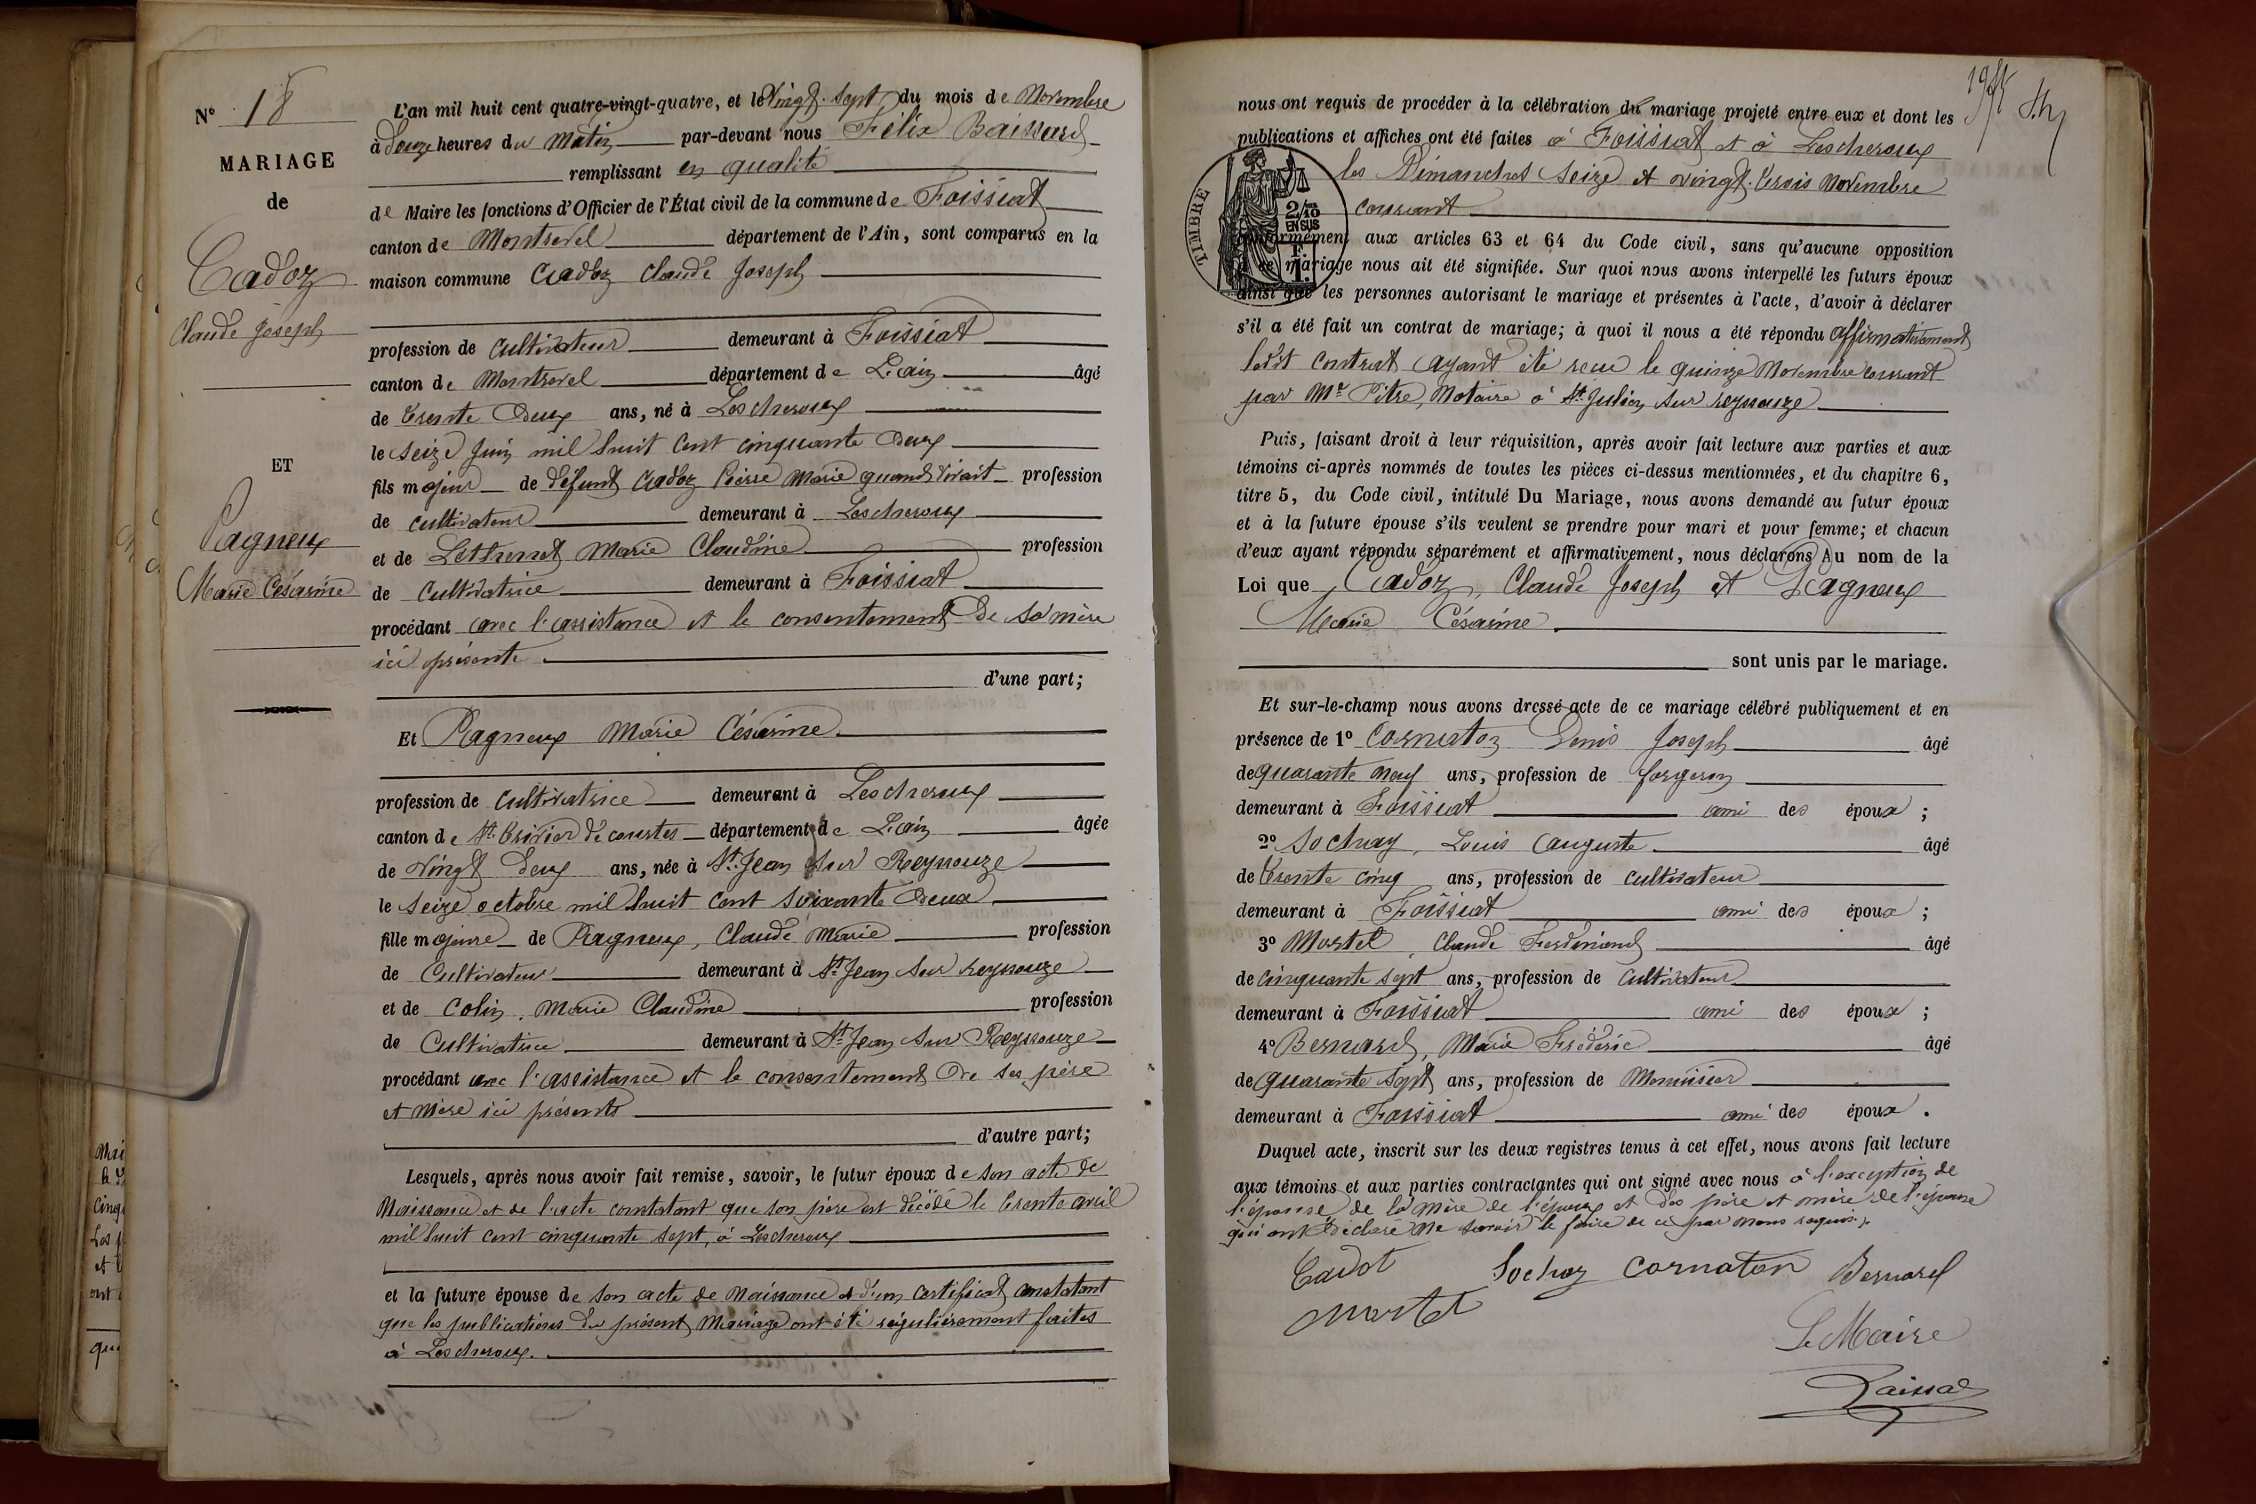 N° 18
MARIAGE
de
Cadoz
Claude Joseph
ET
Pagneux
Marie Césarine
L'an mil huit cent quatre-vingt-quatre, et le Vingt-sept du mois de Novembre
à Douze heures du Matin par-devant nous Félix Baissard
remplissant en qualité
de Maire les fonctions d'Officier de l'État civil de la commune de Foissiat
canton de Montrevel département de l'Ain, sont comparus en la
maison commune Cadoz Claude Joseph
profession de cultivateur demeurant à Foissiat
canton de Montrevel département de L'ain âgé
de trente Deux ans, né à Lescheroux
le seize Juin mil huit cent cinquante Deux
fils majeur de défunt Cadoz Pierre Marie quand vivait profession
de cultivateur demeurant à Lescheroux
et de Lethenet Marie Claudine profession
de Cultivatrice demeurant à Foissiat
procédant avec l'assistance et le consentement De sa mère
ici présente
d'une part;
Et Pagneux Marie Césarine
profession de cultivatrice demeurant à Lescheroux
canton de St. Trivier de courtes département de L'ain âgée
de Vingt Deux ans, née à St. Jean sur Reyssouze
le seize octobre mil huit cent soixante Deux
fille majeure de Pagneux, Claude Marie profession
de Cultivateur demeurant à St. Jean sur reyssouze
et de Colin, Marie Claudine profession
de Cultivatrice demeurant à St. Jean sur Reyssouze
procédant avec l'assistance et le consentement De ses père
et mère ici présents
d'autre part;
Lesquels, après nous avoir fait remise, savoir, le futur époux de son acte de
Naissance et de l'acte constatant que son père est décédé le trente avril
mil huit cent cinquante sept, à Lescheroux
et la future épouse de son acte de Naissance et d'un certificat constatant
que les publications du présent Mariage ont été régulièrement faites
à Lescheroux.
nous ont requis de procéder à la célébration du mariage projeté entre eux et dont les
publications et affiches ont été faites à Foissiat et à Lescheroux
les Dimanches seize et vingt-trois Novembre
courant
TIMBRE
2/10
EN SUS
conformément aux articles 63 et 64 du Code civil, sans qu'aucune opposition
à ce mariage nous ait été signifiée. Sur quoi nous avons interpellé les futurs époux
ainsi que les personnes autorisant le mariage et présentes à l'acte, d'avoir à déclarer
s'il a été fait un contrat de mariage; à quoi il nous a été répondu affirmativement
ledit contrat ayant été reçu le quinze Novembre courant
par Me. Pitre, Notaire à St. Julien sur reyssouze
Puis, faisant droit à leur réquisition, après avoir fait lecture aux parties et aux
témoins ci-après nommés de toutes les pièces ci-dessus mentionnées, et du chapitre 6,
titre 5, du Code civil, intitulé Du Mariage, nous avons demandé au futur époux
et à la future épouse s'ils veulent se prendre pour mari et pour femme; et chacun
d'eux ayant répondu séparément et affirmativement, nous déclarons Au nom de la
Loi que Cadoz, Claude Joseph et Pagneux
Marie Césarine
sont unis par le mariage.
Et sur-le-champ nous avons dressé acte de ce mariage célébré publiquement et en
présence de 1° Cornaton Denis Joseph âgé
de quarante neuf ans, profession de forgeron
demeurant à Foissiat ami des époux;
2° Sochay, Louis Auguste âgé
de trente cinq ans, profession de cultivateur
demeurant à Foissiat ami des époux;
3° Mortel, Claude Ferdinand âgé
de cinquante sept ans, profession de cultivateur
demeurant à Foissiat ami des époux;
4° Bernard, Marie Frédéric âgé
de quarante sept ans, profession de Menuisier
demeurant à Foissiat ami des époux.
Duquel acte, inscrit sur les deux registres tenus à cet effet, nous avons fait lecture
aux témoins et aux parties contractantes qui ont signé avec nous à l'exception de
l'épouse de la mère de l'époux et des père et mère de l'épouse
qui ont déclaré ne savoir le faire de ce par nous requis.
Cadot Sochay Cornaton Bernard
Mortel
Le Maire
Baissard